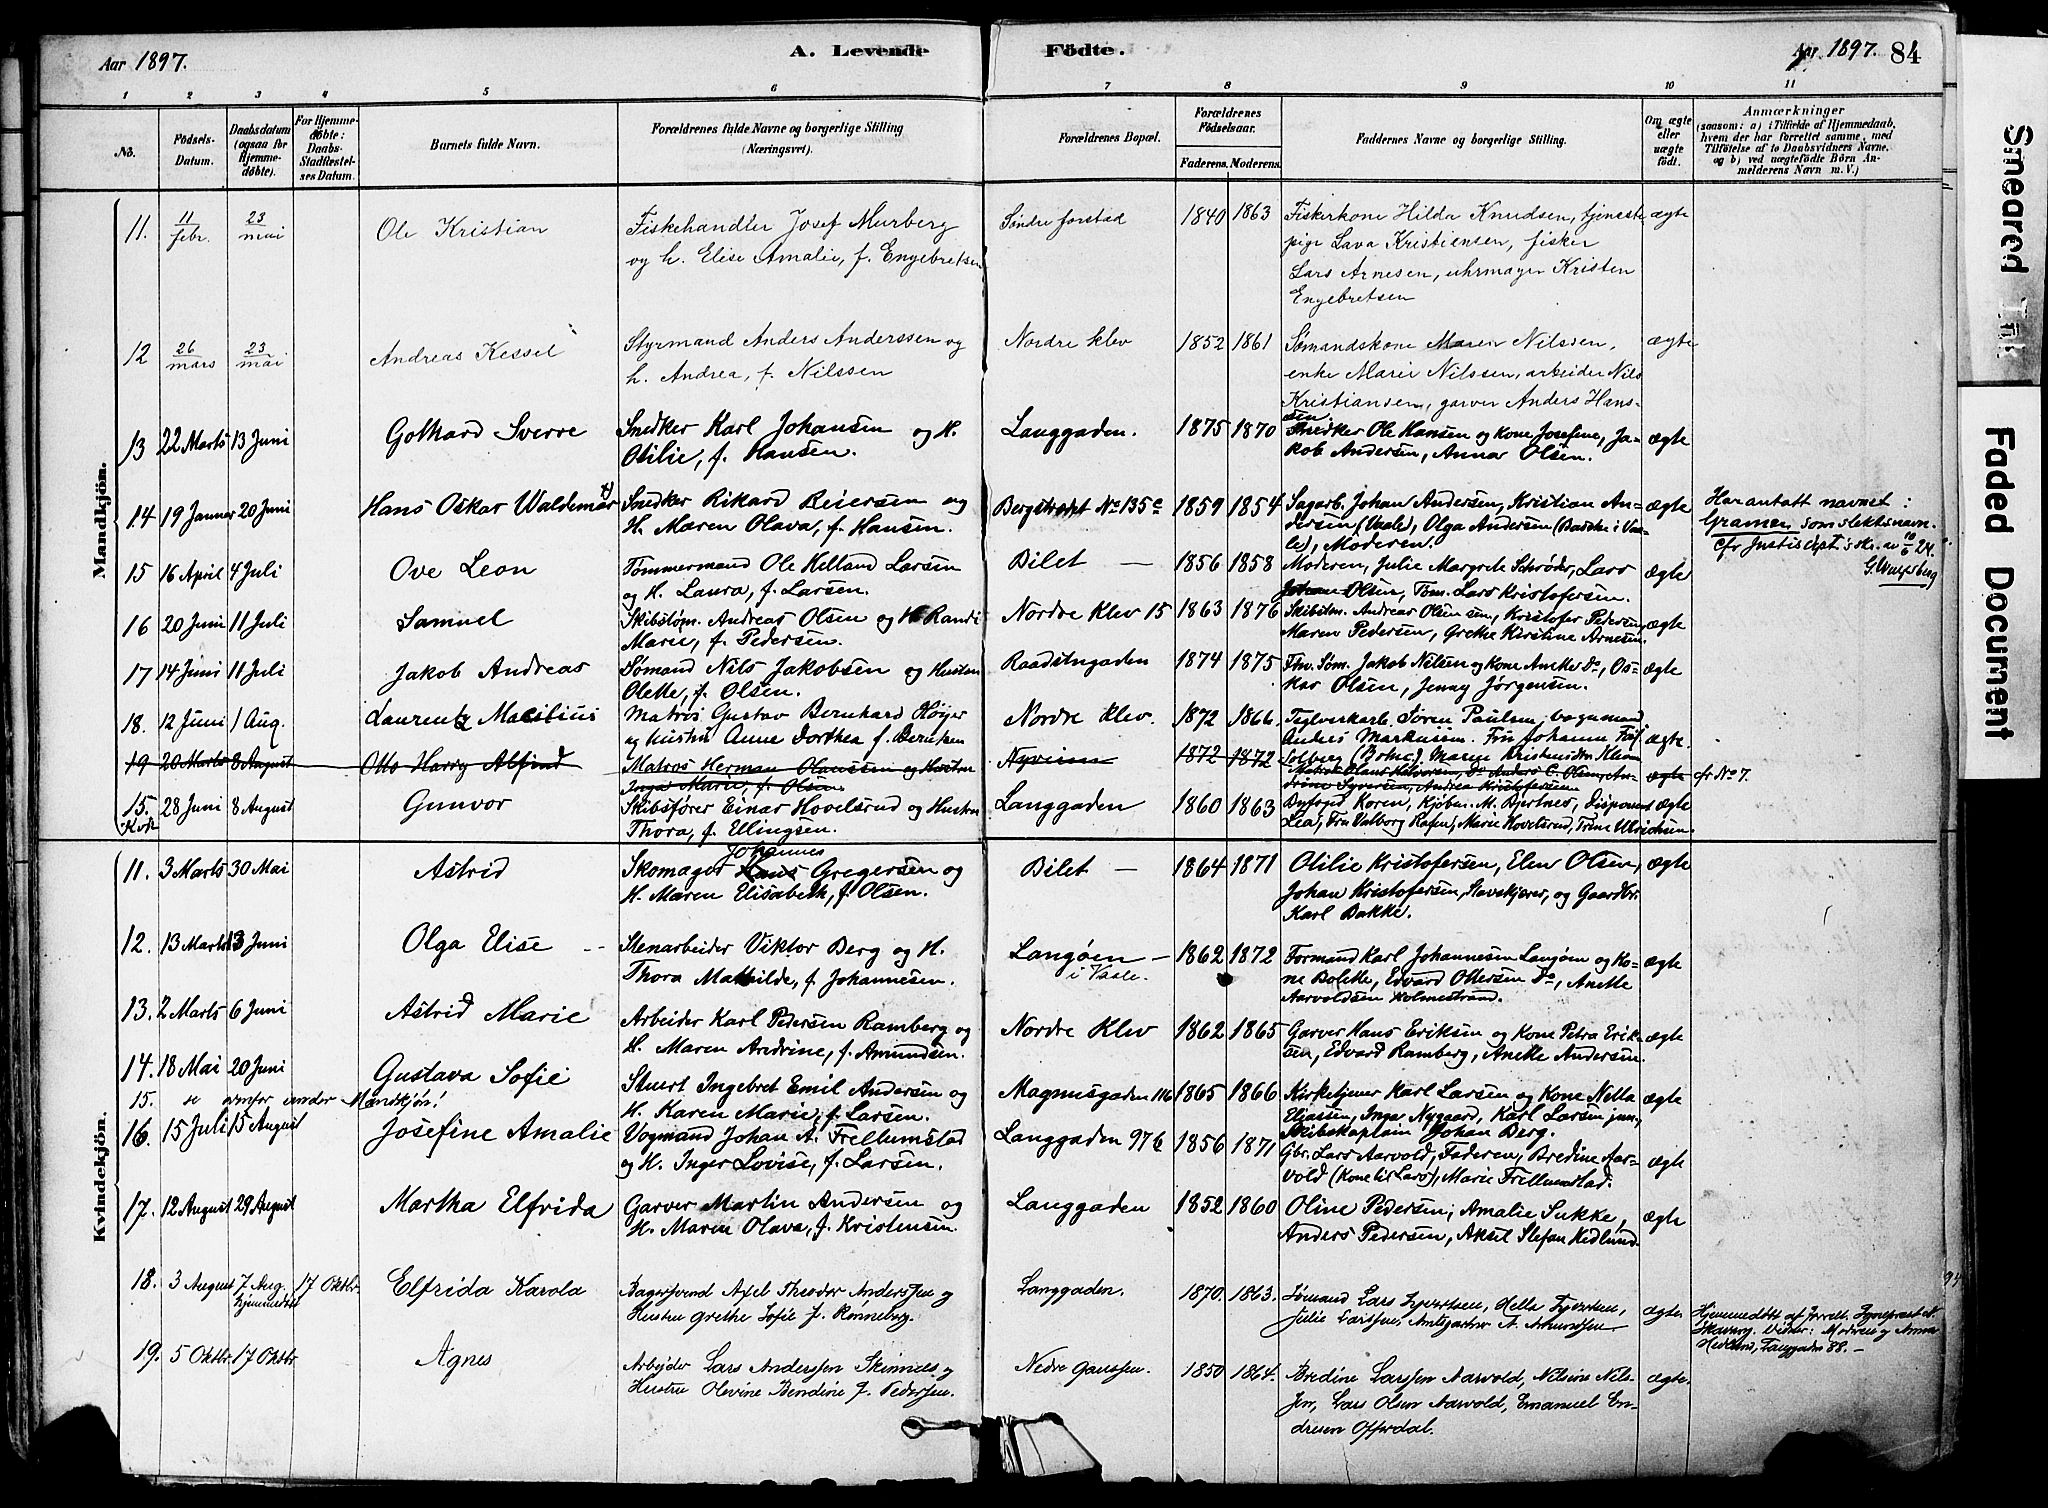 Aar 1897.
A. Levende Födte.
Aar 1897.
84
1 2 3 4 5 6 7 8 9 10 11
No. Födsels-Datum. Daabsdatum (ogsaa for Hjemmedøbte). For Hjemmedøbte: Daabs-Stadfæstelses Datum. Barnets fulde Navn. Forældrenes fulde Navne og borgerlige Stilling (Næringsvei). Forældrenes Bopæl. Forældrenes Födselsaar. Faderens. Moderens. Faddernes Navne og borgerlige Stilling. Om ægte eller uægte født. Anmærkninger (saasom: a) i Tilfælde af Hjemmedaab, hvem der har forrettet samme, med Tilföielse af to Daabsvidners Navne, og b) ved uægtefödte Börn Anmelderens Navn m. V.)
Mandkjön.
11. 11 febr. 23 mai Ole Kristian Fiskehandler Josef Murberg Søndre forstad 1840 1863 Fiskerkone Hilda Knudsen, tjeneste ægte
og h. Elise Amalie, f. Engebretsen pige Lava Kristiensen, fisker
Lars Arnesen, uhrmager Kristen
Engebretsen
12 26 mars 23 mai Andreas Kessel Styrmand Anders Anderssen og Nordre klev 1852 1861 Sømandskone Maren Nilssen, ægte
h. Andrea, f. Nilssen enke Marie Nilssen, arbeider Nils
Kristiansen, garver Anders Hans-
sen.
13 22 Marts 13 Juni Gothard Sverre Snedker Karl Johansen og H. Langgaden. 1875 1870 Snedker Ole Hansen og Kone Josefine, Ja- ægte
Otilie, f. Hansen. kob Andersen, Anna Olsen.
14 19 Januar 20 Juni Hans Oskar Waldemar Snedker Rikard Reiersen og Bergstrædet No 135c 1859 1854 Sagarb. Johan Andersen, Kristian An- ægte Har antatt navnet:
H. Maren Olava, f. Hansen. dersen (Vaale), Olga Andersen (Bakke i Vaa- Gramer, som slektsnavn.
le), Moderen. cfr Justisdept's skr. av 10/6 24.
G. Wulfsberg
15 16 April 4 Juli Ove Leon Tømmermand Ole Helland Larsen Bilet — 1856 1858 Moderen, Julie Margrete Schrøder, Lars ægte
og H. Laura, f. Larsen. Johan Olsen, Tøm. Lars Kristofersen.
16 20 Juni 11 Juli Samuel Skibstøm. Andreas Olsen og H. Randi Nordre Klev 15 1863 1876 Skibstm. Andreas Olsen sen, Kristofer Pedersen ægte
Marie, f. Pedersen. Maren Pedersen, Grethe Kirstine Arnesen.
17 14 Juni 11 Juli Jakob Andreas Sømand Nils Jakobsen og Hustru Raadstugaden 1874 1875 Fhv. Søm. Jakob Nilsen og Kone Anette Do, Os- ægte
Olette, f. Olsen. kar Olsen, Jenny Jørgensen.
18. 12 Juni 1 Aug. Laurentz Matros Gustav Bernhard Höyer Nordre Klev. 1872 1866 Teglverkarb. Sören Paulsen, vognmand ægte.
og Hustru Anne Dorthea f. Anders Markussen. Fru Johanne
Solberg (Botne), Maren Klem
19 20 Marts 8 August Otto Harry Alfred Matros Herman Olaussen og Hustru Nyveien 1872 1872 Matros Olaus Halvorsen, Do Anders C. Olsen, An- ægte cfr No 7.
Inga Marie, f. Olsen drine Syversen, Andrea Kristofersen
15. Kvk 28 Juni 8 August Gunvor Skibsfører Einar Hovelsrud og Hustru Langgaden 1860 1863 Byfoged Koren, Kjøbm. M. Bjertnes, Disponent ægte
Thora, f. Ellingsen. Lea, Fru Valborg Marie Hovelsrud, Trine Ulrichsen.
Kvindekjön.
11. 3 Marts 30 Mai Astrid Skomager Hans Johannes Gregersen og Bilet — 1864 1871 Otilie Kristofersen, Elen Olsen, ægte
H. Maren Elisabeth, f. Olsen. Johan Kristofersen, Havskjærer, og Gaardbr.
Karl Bakke.
12. 13 Marts 13 Juni Olga Elise Stenarbeider Viktor Berg og H. Langøen — i Vaale. 1862 1872 Formand Karl Johannesen Langøen og Ko- ægte
Thora Mathilde, f. Johannesen. ne Bolette, Edvard Ottersen Do, Anette
Aarvoldsen Holmestrand.
13. 2 Marts 6 Juni Astrid Marie Arbeider Karl Pedersen Ramberg og Nordre Klev 1862 1865 Garver Hans Eriksen og Kone Petra Erik- ægte
H. Maren Andrine, f. Amundsen. sen, Edvard Ramberg, Anette Andersen.
14. 18 Mai 20 Juni Gustava Sofie Stuert Ingebret Emil Andersen og Magnusgaden 116 1865 1866 Kirketjener Karl Larsen og Kone Netta ægte
H. Karen Marie, f. Larsen. Eliassen, Inga Nygaard, Karl Larsen jun.,
Skibskaptein Johan Berg.
15. se ovenfor under Mandkjøn!
16. 15 Juli 15 August Josefine Amalie Vogmand Johan A. Frellumstad Langgaden 976 1856 1871 Gbr. Lars Aarvold, Faderen, Bredine Aar- ægte
og H. Inger Lovise, f. Larsen. vold (Kone til Lars), Marie Frellumstad.
17. 12 August 29 August Martha Elfrida Garver Martin Andersen og Langgaden 1852 1860 Oline Pedersen, Amalie Sukke, ægte
H. Maren Olava, f. Kristensen Anders Pedersen, Aksel Stefan Hedlund.
18. 3 August 7 Aug. hjemmedøbt 17 Oktbr. Elfrida Karola Bagersvend Axel Theodor Anderssen og Langgaden. 1870. 1863. Sømand Lars Syvertsen, Hella Syvertsen, ægte. Hjemmedøbt af Forrett. Sogneprest
Hustru Grethe Sofie f. Rønneberg. Julie Larssen, Amtsgartner A. Amundsen. Skavang. Vidner: Moderen og Anna
Hedlund, Langgaden 88. —
19. 5 Oktbr. 17 Oktbr. Agnes Arbejder Lars Anderssen Skinnes og Nedre Gaussen. 1850 1864. Bredine Larssen Aarvold, Nilsine Nils- ægte.
Hustru Olevine Bendine f. Pedersen. sen, Lars Olsen Aarvold, Emanuel En-
dresen Offerdal.
Smeared Ink
Faded Document